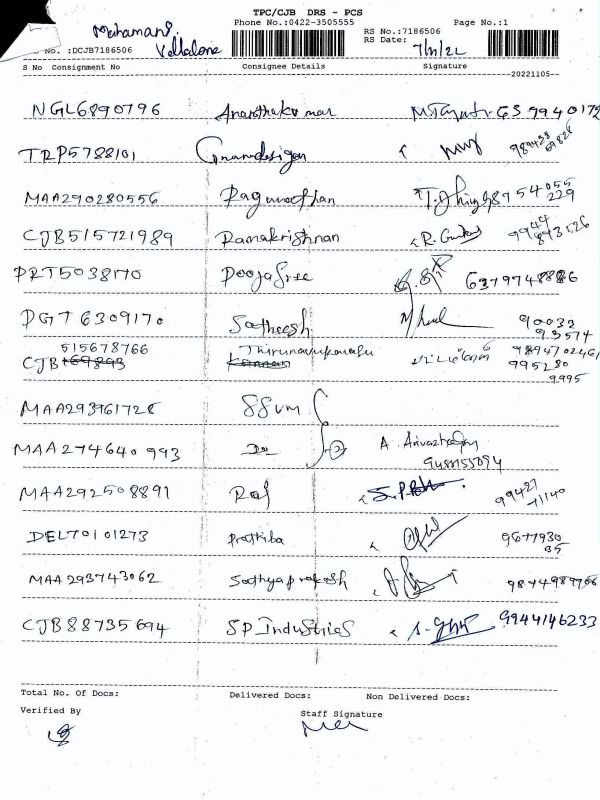 TPC/CJB DRS - PCS
Phone No.:0422-3505555 Page No.:1
Mahamani
RS No.:7186506
No. :DCJB7186506 Vellalore RS Date: 7/11/22
S No Consignment No Consignee Details Signature
20221105
NGL6890796 Ananthakumar
TRP5788101 Gnanadesigan
MAA290280556 Ragunathan
CJB515721989 Ramakrishnan R.
PRT5038170 Poojasree 6379748886
PGT6309170 Satheesh 90033
93574
515678766 Thirunavukarasu 9894702461
CJB 169893 Kannan 995280
9995
MAA293761728 SSVM
MAA274640993 Do A. Arivazhagan
MAA292508891 Raj 99427
71140
DEL70101273 Prathiba 9677930
35
MAA293743062 Sathyaprakash
CJB88735694 SP Industries 9944146233
Total No. Of Docs: Delivered Docs: Non Delivered Docs:
Verified By Staff Signature